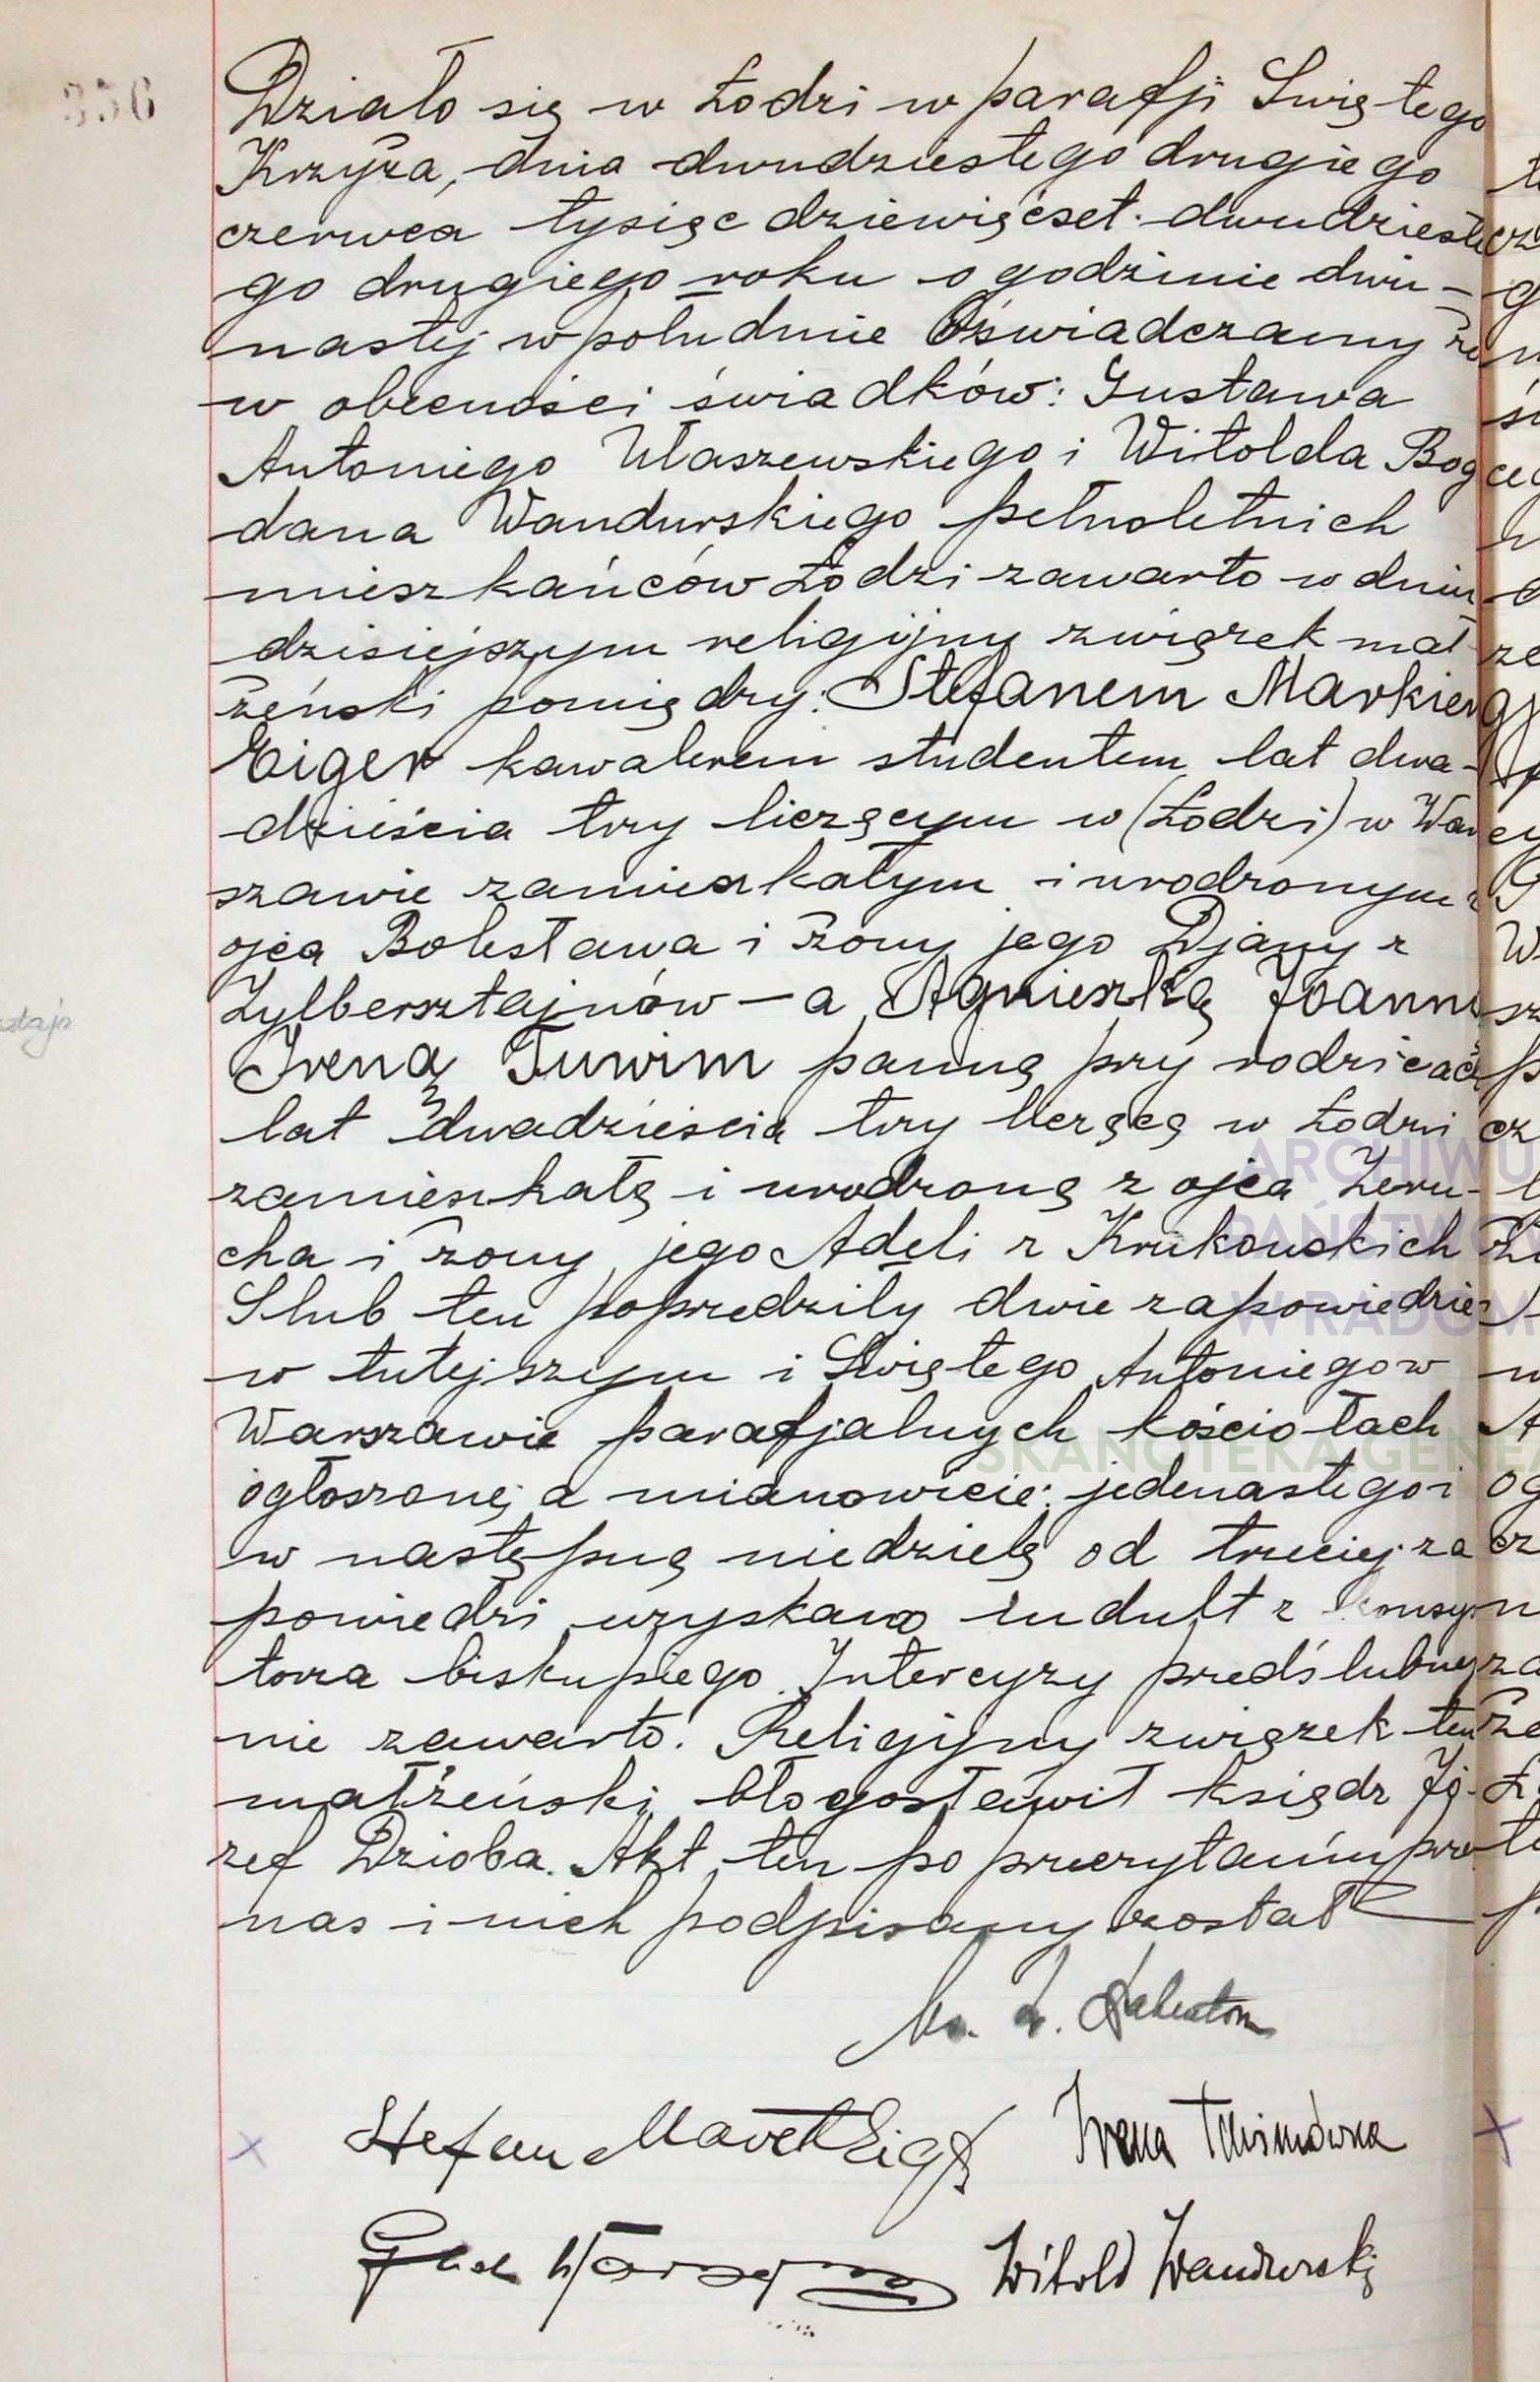 356
Działo się w Łodzi w parafji Świętego
Krzyża, dnia dwudziestego drugiego
czerwca tysiąc dziewięćset dwudzieste
go drugiego roku o godzinie dwu-
nastej w południe Oświadczamy że
w obecności świadków: Gustawa
Antoniego Właszewskiego i Witolda Bog
dana Wandurskiego pełnoletnich
mieszkańców Łodzi zawarto w dniu
dzisiejszym religijny związek mał
żeński pomiędzy: Stefanem Markiem
Eiger kawalerem studentem lat dwa-
dzieścia trzy liczącym w (Łodzi) w War
szawie zamieszkałym i urodzonym z
ojca Bolesława i żony jego Djany z
Zylbersztajnów — a Agnieszką Joanną
Ireną Tuwim panną przy rodzicach
lat dwadzieścia trzy liczącą w Łodzi
zamieszkałą i urodzoną z ojca Zeru-
cha i żony jego Adeli z Krukowskich
Slub ten poprzedziły dwie zapowiedzie
w tutejszym i Świętego Antoniego w
Warszawie parafjalnych kościołach
ogłoszone, a mianowicie: jedenastego i
w następną niedzielę od trzeciej za
powiedzi uzyskano indult z konsys
torza biskupiego. Intercyzy przedślubnej
nie zawarto. Religijny związek ten
małżeński błogosławił ksiądz Jó-
zef Dzioba. Akt ten po przeczytaniu przez
nas i nich podpisany został
Stefan Marek Eiger Irena Tuwimówna
Witold Wandurski
ARCHIWU
PAŃSTWOW
W RADOM
SKANOTEKA GENEA